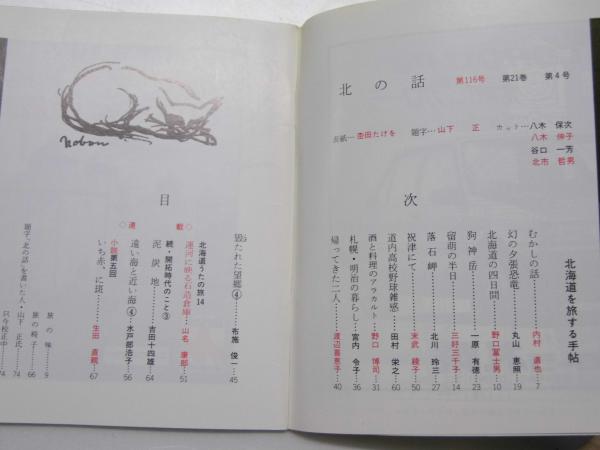 北の話 第116号 第21巻 第4号
表紙…杢田たけを 題字…山下 正 カット…八木 保次
八木 伸子
谷口 一芳
北市 哲男
北海道を旅する手帖
目次
むかしの話…内村 直也…7
幻の夕張恐竜…丸山 恵照…19
北海道の四日間…野口冨士男…10
狗神岳…一原 有徳…23
留萌の半日…三好三千子…14
落石岬…北川 玲三…27
祝津にて…米武 綾子…50
道内高校野球雑感…田村 栄之…60
酒と料理のアラカルト…野口 博司…31
札幌・明治の暮らし…宮内 令子…36
帰ってきた二人…渡辺喜恵子…40
毀たれた望郷④…布施 俊一…45
◇連載◇
北海道うたの旅14
運河に映る石造倉庫…山名 康郎…51
続・開拓時代のこと③
泥炭地…吉田十四雄…64
遠い海と近い海④…水戸部浩子…56
小説第五回
いち赤、に斑…生田 直親…67
旅の味…9
旅の椅子…66
題字「北の話」を書いた人・山下 正氏…74
只今校正中…74
Nobuo